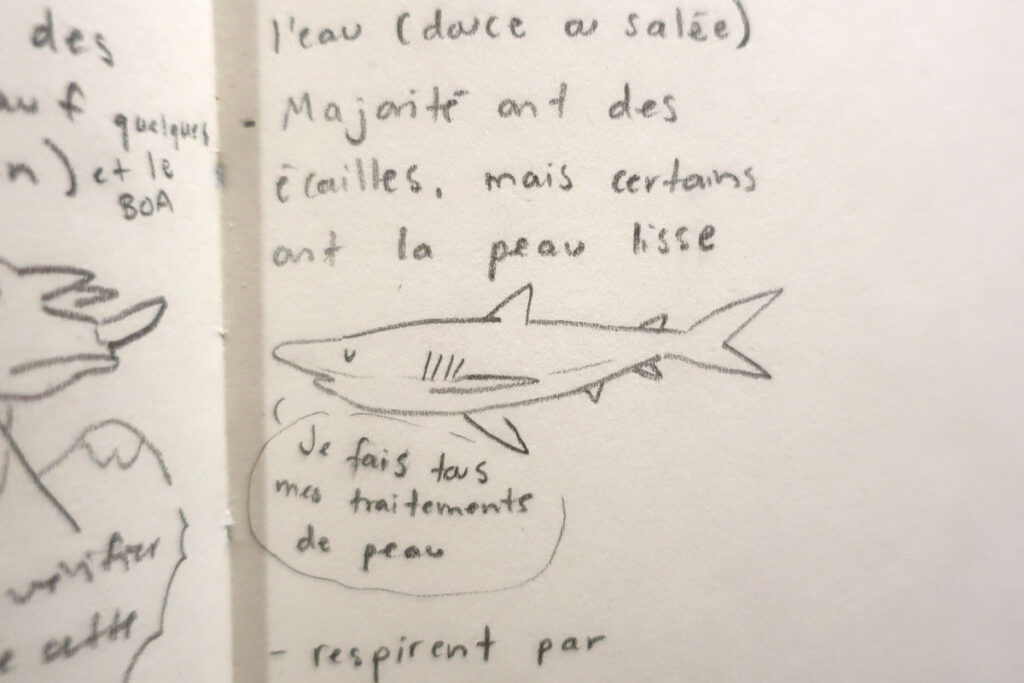 des
quelques
et le
BOA
vérifier
cette
l'eau (douce ou salée)
- Majorité ont des
écailles, mais certains
ont la peau lisse
Je fais tous
mes traitements
de peau
- respirent par